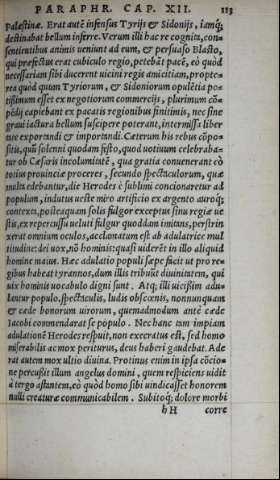 PARAPHR. CAP. XII. 113
Palæstinæ. Erat autē infensus Tyrijs & Sidonijs, iamq;
destinabat bellum inferre. Verum illi hac re cognita, con-
sentientibus animis ueniunt ad eum, & persuaso Blasto,
qui præfectus erat cubiculo regio, petebāt pacē, eò quòd
necessariam sibi ducerent uicini regis amicitiam, propte-
rea quòd quum Tyriorum, & Sidoniorum opulētia po-
tissimum esset ex negotiorum commercijs, plurimum cō-
pēdij capiebant ex pacatis regionibus finitimis, nec sine
graui iactura bellum suscipere poterant, intermissa liber
tate exportandi & importandi. Cæterum his rebus cōpo-
sitis, quū solenni quodam festo, quod uotiuum celebraba-
tur ob Cæsaris incolumitatē, qua gratia conuenerant eò
totius prouinciæ proceres, secundo spectaculorum, quæ
multa edebantur, die Herodes è sublimi concionaretur ad
populum, indutus ueste miro artificio ex argento auroq;
contexta, posteaquam solis fulgor exceptus sinu regiæ ue
stis, ex repercussu ueluti fulgur quoddam imitans, perstrin
xerat omnium oculos, acclamatum est ab adulatrice mul
titudine: dei uox, nō hominis: quasi uiderēt in illo aliquid
homine maius. Hæc adulatio populi sæpe fuit ut pro re-
gibus habeat tyrannos, dum illis tribuit diuinitatem, qui
uix hominis uocabulo digni sunt. Atq; illi uicissim adu-
lantur populo, spectaculis, ludis obscœnis, nonnunquam
& cæde bonorum uirorum, quemadmodum antè cæde
Iacobi commendarat se populo. Nec hanc tam impiam
adulationē Herodes respuit, non execratus est, sed homo
miserabilis ac mox periturus, deus haberi gaudebat. Ade
rat autem mox ultio diuina. Protinus enim in ipsa cōcio-
ne percussit illum angelus domini, quem respiciens uidit
à tergo astantem, eò quòd homo sibi uindicasset honorem
nulli creaturæ communicabilem. Subitoq; dolore morbi
h H corre